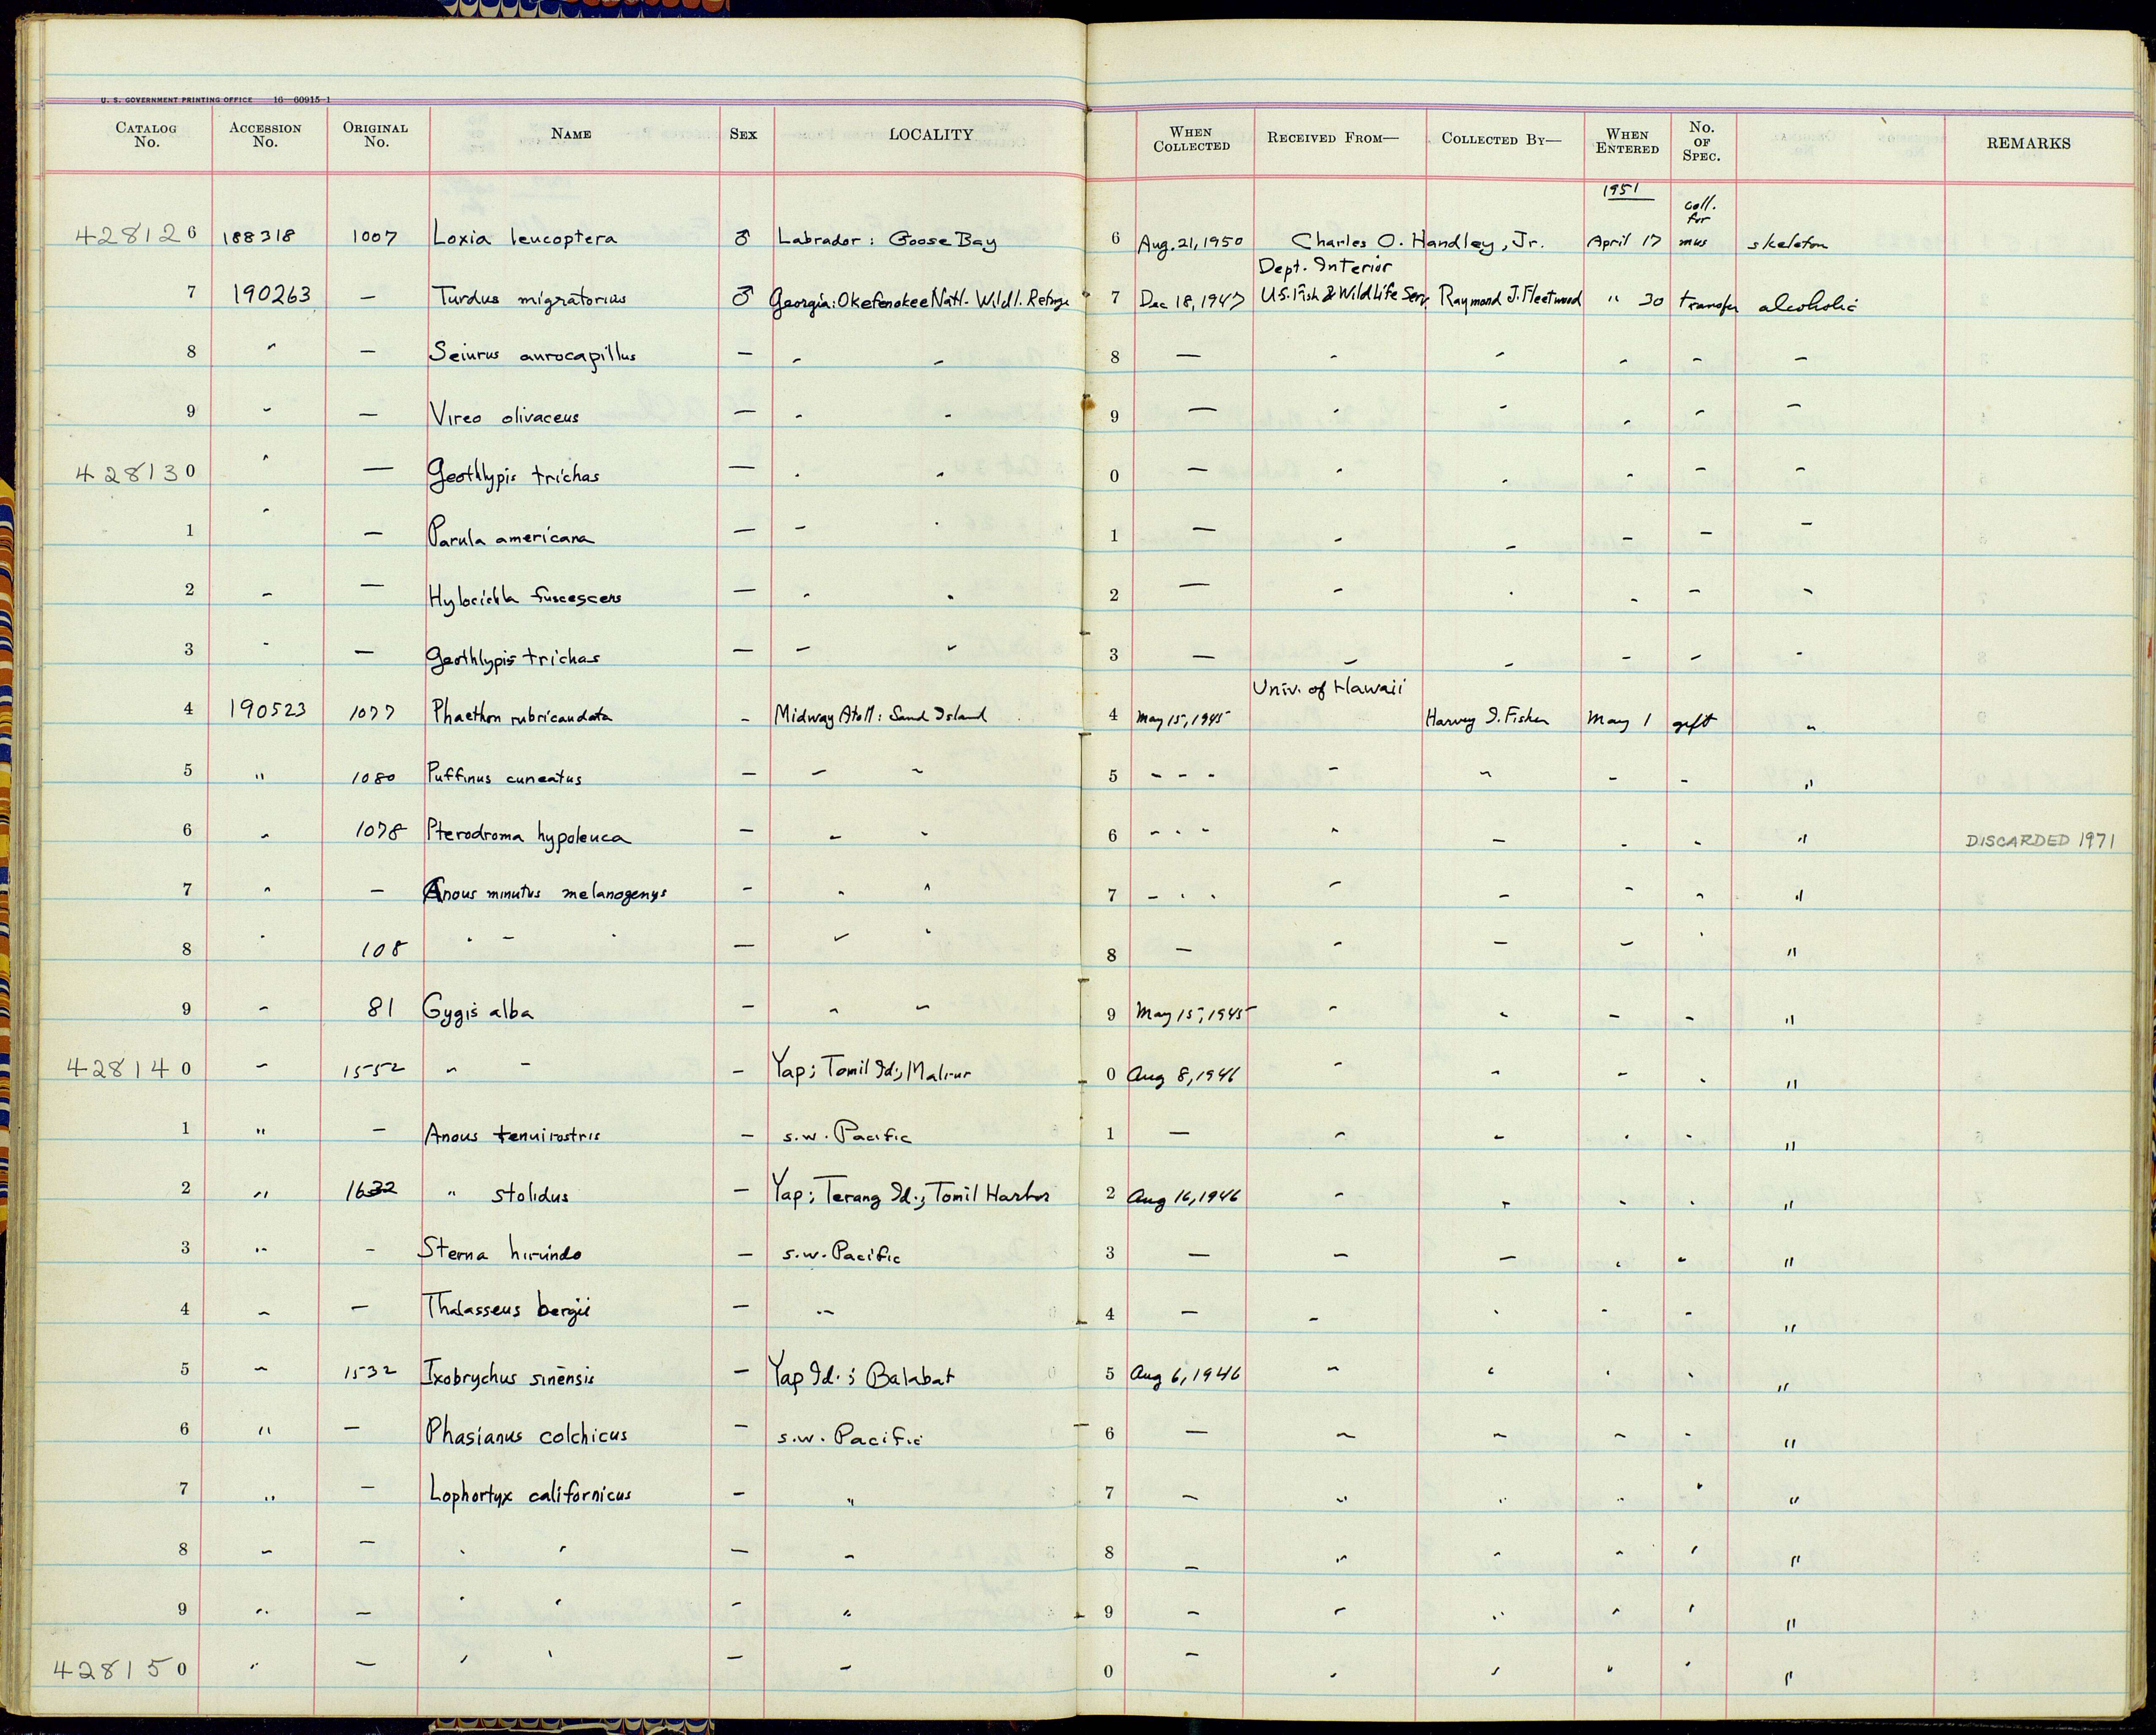 U. S. GOVERNMENT PRINTING OFFICE 16—60915-1
CATALOG No. ACCESSION No. ORIGINAL No. NAME SEX LOCALITY WHEN COLLECTED RECEIVED FROM— COLLECTED BY— WHEN ENTERED No. OF SPEC. REMARKS
1951
428126 188318 1007 Loxia leucoptera ♂ Labrador: Goose Bay 6 Aug. 21, 1950 Charles O. Handley, Jr. April 17 coll. for mus skeleton
7 190263 — Turdus migratorius ♂ Georgia: Okefenokee Natl. Wildl. Refuge 7 Dec 18, 1947 Dept. Interior U.S. Fish & Wildlife Serv. Raymond J. Fleetwood " 30 transfer alcoholic
8 " — Seiurus aurocapillus — " " 8 — " " " " "
9 " — Vireo olivaceus — " " 9 — " " " " "
428130 " — Geothlypis trichas — " " 0 — " " " " "
1 " — Parula americana — " " 1 — " " " " "
2 " — Hylocichla fuscescens — " " 2 — " " " " "
3 " — Geothlypis trichas — " " 3 — " " " " "
4 190523 1077 Phaethon rubricaudata — Midway Atoll: Sand Island 4 May 15, 1945 Univ. of Hawaii Harvey I. Fisher May 1 gift "
5 " 1080 Puffinus cuneatus — " " 5 " " " " " " " "
6 " 1078 Pterodroma hypoleuca — " " 6 " " " " " " " " DISCARDED 1971
7 " — Anous minutus melanogenys — " " 7 " " " " " " " "
8 " 108 " " " — " " 8 — " " " " "
9 " 81 Gygis alba — " " 9 May 15, 1945 " " " " "
428140 " 1552 " " — Yap; Tomil Id.; 0 Aug 8, 1946 " " " " "
1 " — Anous tenuirostris — s.w. Pacific 1 — " " " " "
2 " 1632 " stolidus — Yap; Terang Id.; Tomil Harbor 2 Aug 16, 1946 " " " " "
3 " — Sterna hirundo — s.w. Pacific 3 — " " " " "
4 " — Thalasseus bergii — " 4 — " " " " "
5 " 1532 Ixobrychus sinensis — Yap Id.; Balabat 5 Aug 6, 1946 " " " " "
6 " — Phasianus colchicus — s.w. Pacific 6 — " " " " "
7 " — Lophortyx californicus — " 7 — " " " " "
8 " — " " — " 8 — " " " " "
9 " — " " — " 9 — " " " " "
428150 " — " " — " 0 — " " " " "